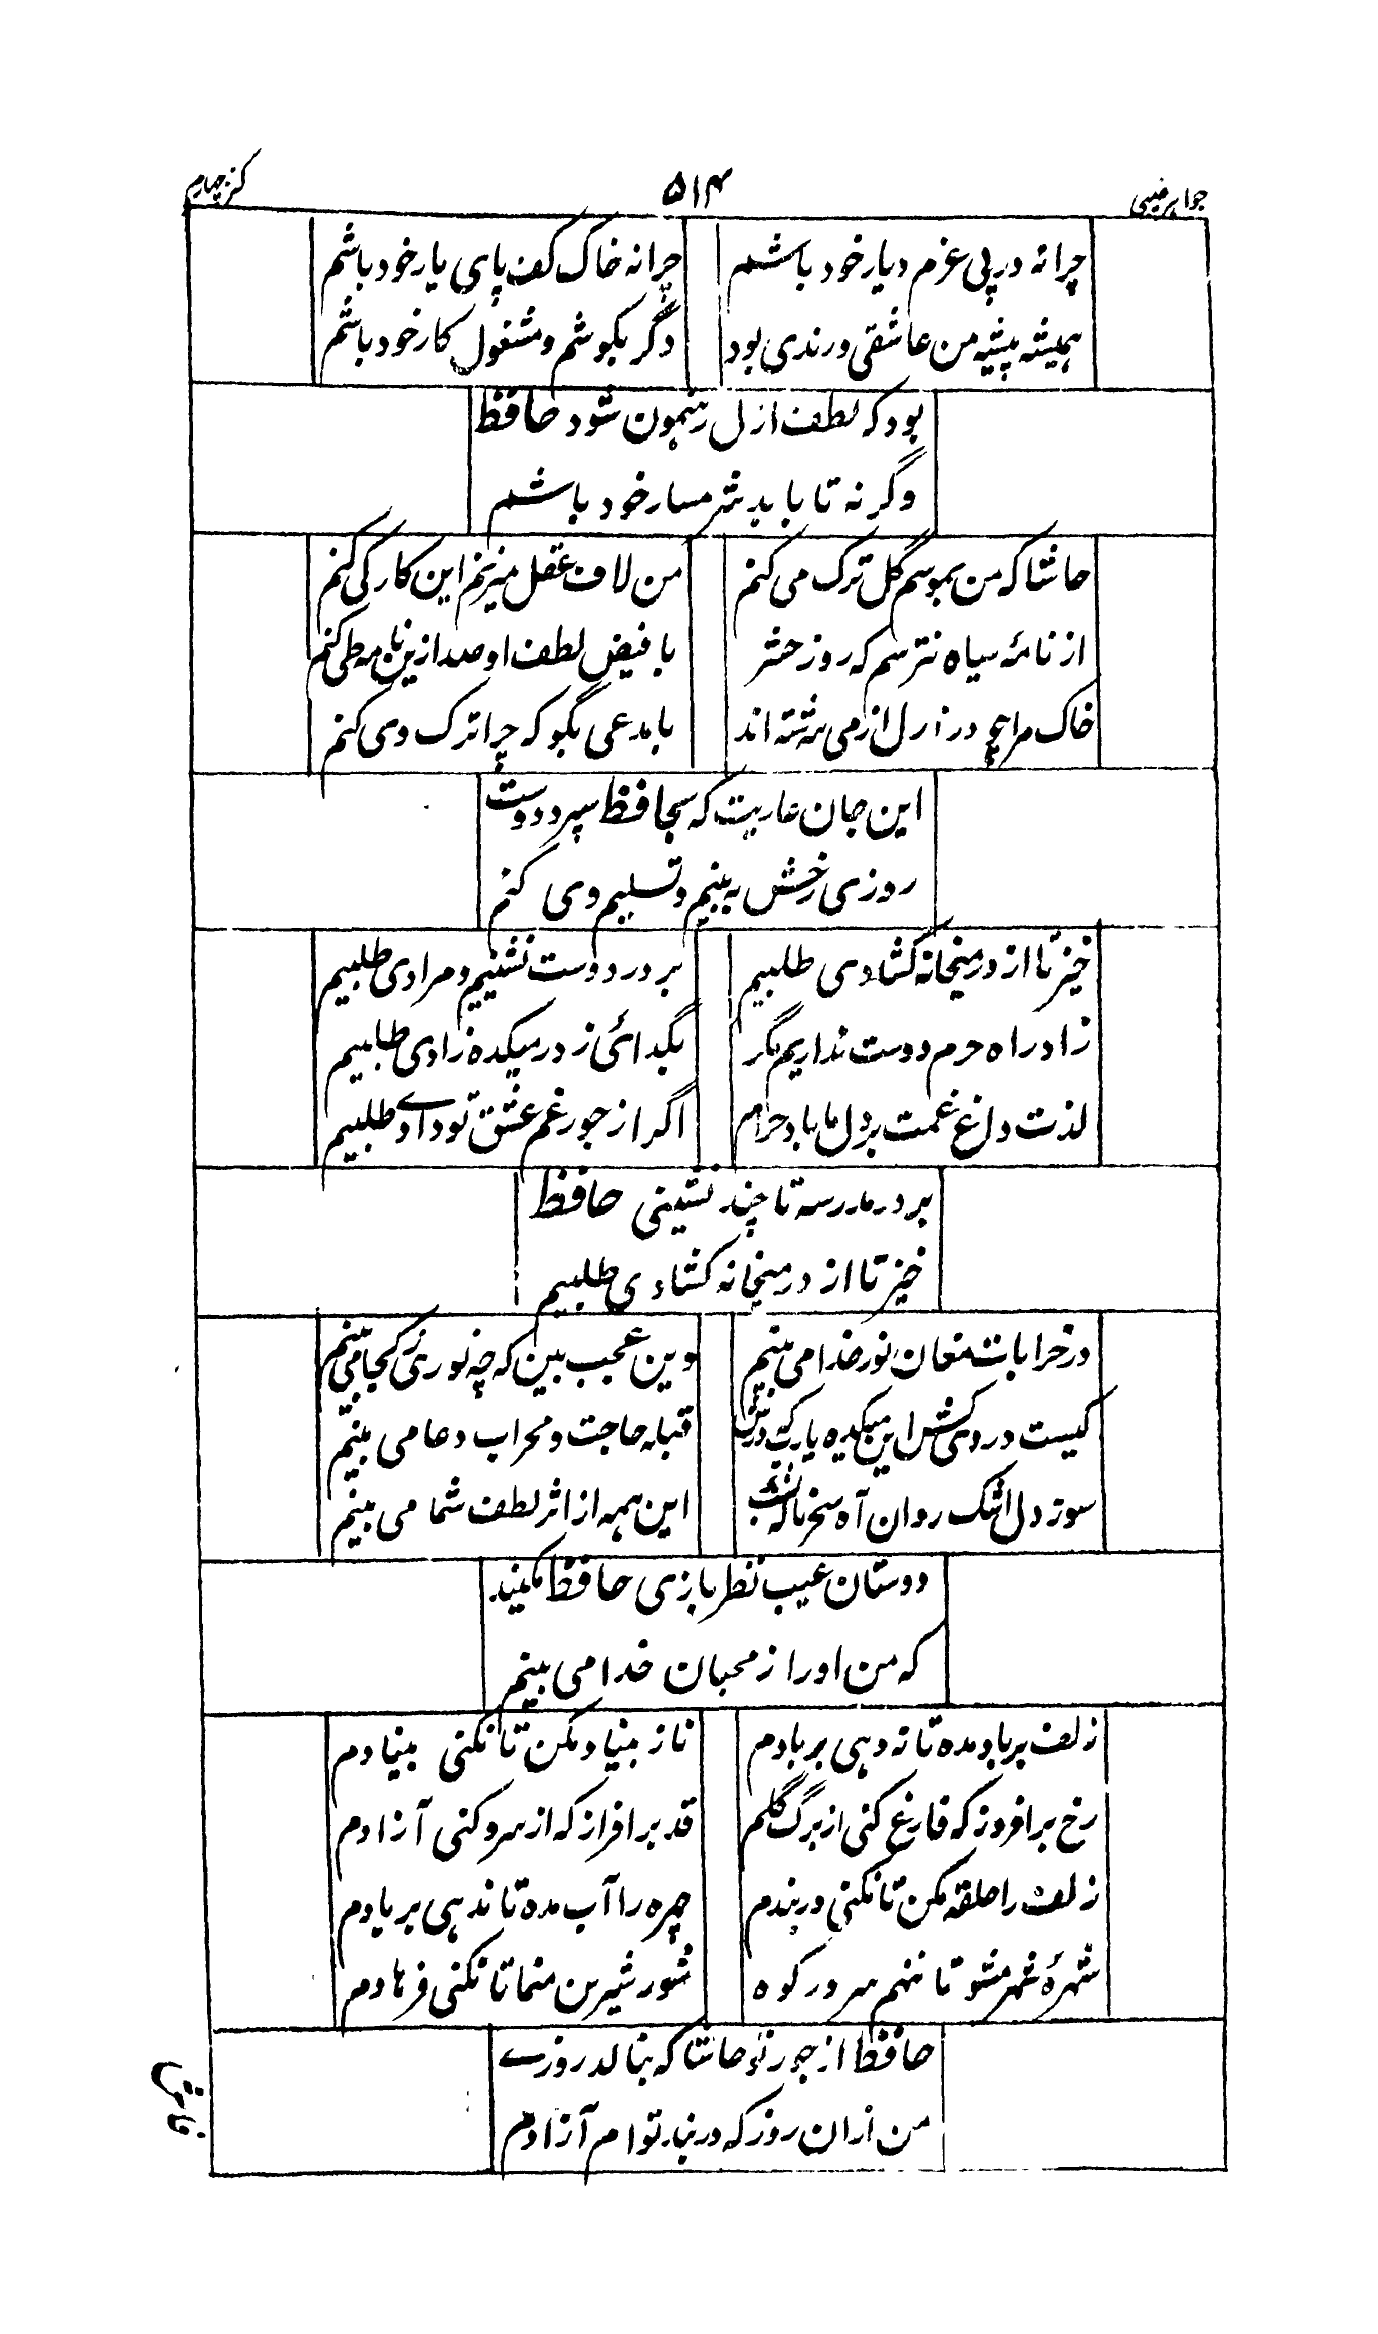 جواہر غیبی
۵۱۴
کنز چهارم
چرا نه در پی عزم دیار خود باشم
چرا نه خاک کف پای یار خود باشم
همیشه پیشه من عاشقی و رندی بود
دگر بکوشم و مشغول کار خود باشم
بود که لطف ازل رهنمون شود حافظ
وگرنه تا بابد شرمسار خود باشم
حاشا که من بموسم گل ترک می کنم
من لاف عقل میزنم این کار کی کنم
از نامۀ سیاه نترسم که روز حشر
با فیض لطف او صد ازین نامه طی کنم
خاک مرا چو در ازل از می سرشته اند
با مدعی بگو که چرا ترک وی کنم
این جان عاریت که بحافظ سپرد دوست
روزی رخش به بینم و تسلیم وی کنم
خیز تا از در میخانه کشادی طلبیم
بر در دوست نشینیم و مرادی طلبیم
زاد راه حرم دوست نداریم مگر
بگدائی ز در میکده زادی طلبیم
لذت داغ غمت بر دل ما باد حرام
اگر از جور غم عشق تو دادے طلبیم
بر در مدرسه تا چند نشینی حافظ
خیز تا از در میخانه کشادی طلبیم
در خرابات مغان نور خدا می بینم
وین عجب بین که چه نوری ز کجا می بینم
کیست دردی کش این میکده یارب که درش
قبله حاجت و محراب دعا می بینم
سوز دل اشک روان آه سحر ناله شب
این همه از اثر لطف شما می بینم
دوستان عیب نظر بازی حافظ مکنید
که من او را ز محبان خدا می بینم
زلف بر باد مده تا نه دہی بر بادم
ناز بنیاد مکن تا نکنی بنیادم
رخ بر افروز که فارغ کنی از برگ گلم
قد بر افراز که از سرو کنی آزادم
زلف را حلقه مکن تا نکنی در بندم
چهره را آب مده تا ندہی بر بادم
شهرۀ شهر مشو تا ننهم سر در کوه
شور شیرین منما تا نکنی فرهادم
حافظ از جور تو حاشا که بنالد روزے
من ازان روز که در بند توام آزادم